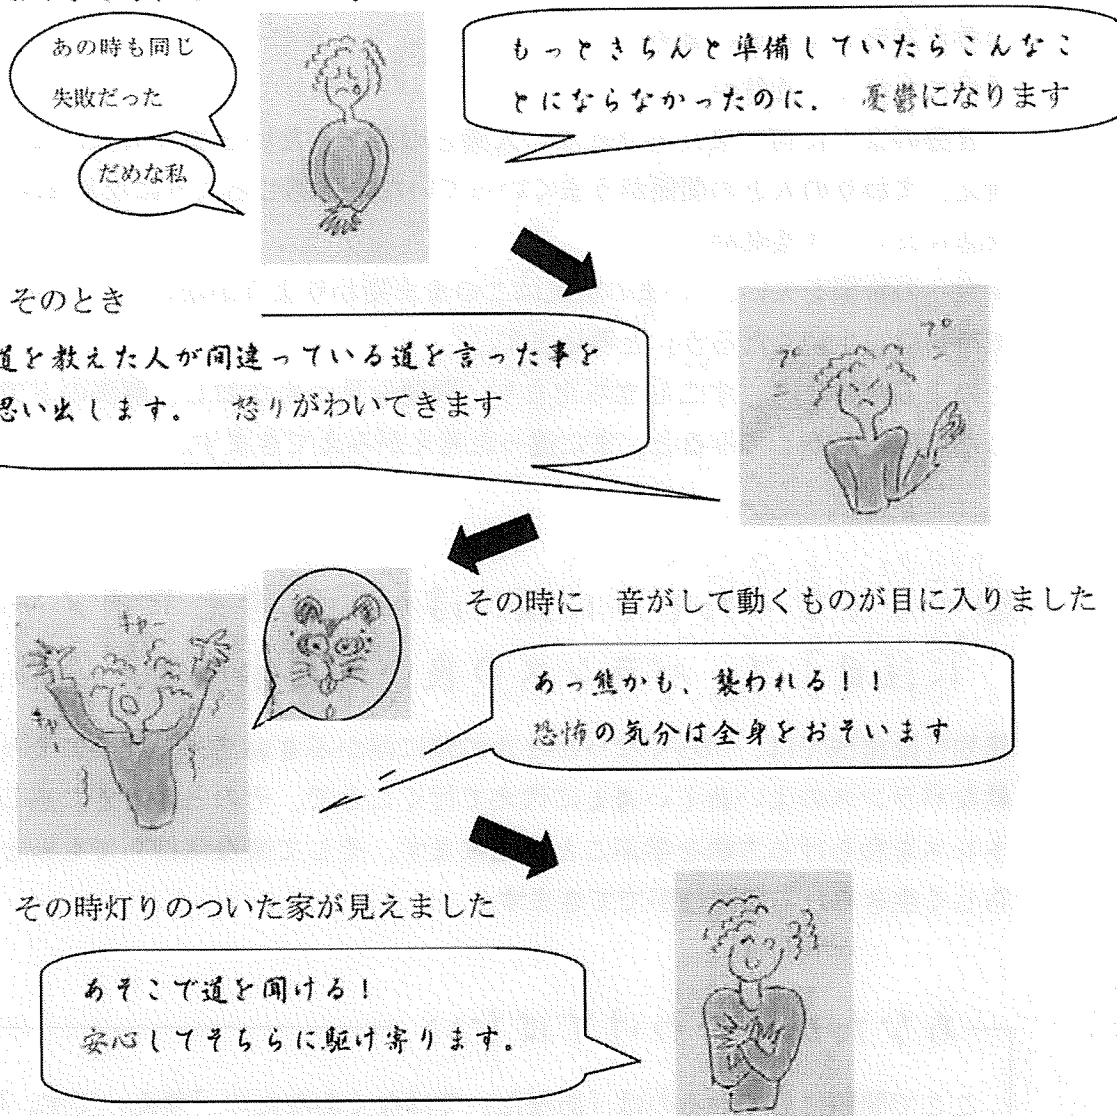 あの時も同じ
失敗だった
だめな私
もっときちんと準備していたらこんなこ
とにならなかったのに. 憂鬱になります
そのとき
道を教えた人が間違っている道を言った事を
思い出します。 怒りがわいてきます
プ
プ
その時に 音がして動くものが目に入りました
キャー
キャー
あっ熊かも、襲われる！！
恐怖の気分は全身をおそいます
その時灯りのついた家が見えました
あそこで道を聞ける！
安心してそちらに駆け寄ります。